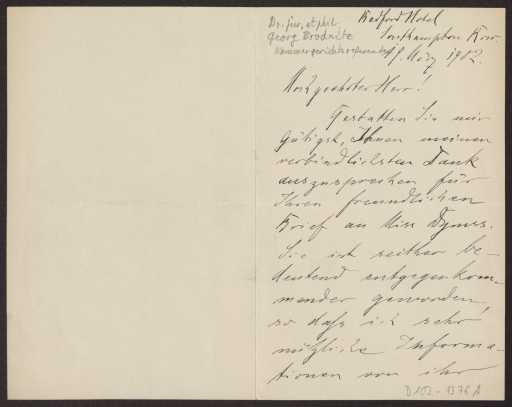 Dr. jur. et phil.
Georg Brodnitz
Kammergerichtsreferendar
Bedford Hotel
Southampton Row
9. März 1902.
Hochgeehrter Herr!
Gestatten Sie mir
gütigst, Ihnen meinen
verbindlichsten Dank
auszusprechen für
Ihren freundlichen
Brief an Miss
Sie ist seither be-
deutend entgegenkom-
mender geworden,
so daß ich sehr
nützliche Informa-
tionen von ihr
D 102 - 1376 A